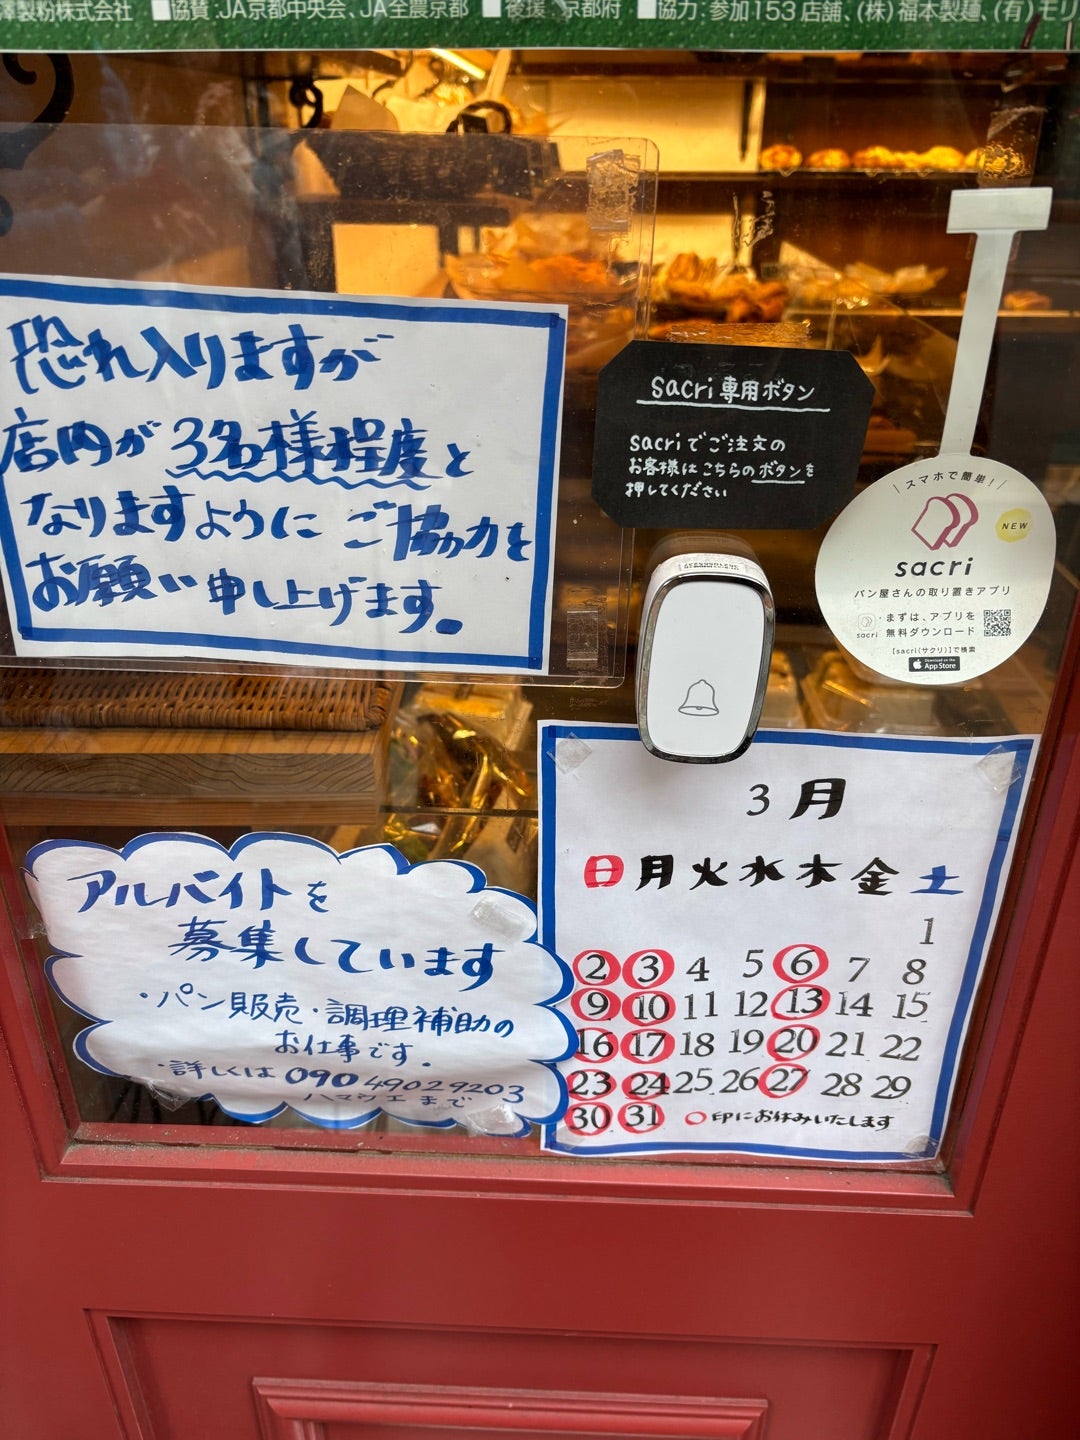 澤製粉株式会社 ■協賛：JA京都中央会、JA全農京都 ■後援：京都府 ■協力：参加153店舗、(株)福本製麺、(有)モリ
恐れ入りますが
店内が3名様程度と
なりますように ご協力を
お願い申し上げます。
sacri専用ボタン
sacriでご注文の
お客様はこちらのボタンを
押してください
\スマホで簡単！/
NEW
sacri
パン屋さんの取り置きアプリ
まずは、アプリを
無料ダウンロード
sacri
[sacri(サクリ)]で検索
Download on the
App Store
アルバイトを
募集しています
・パン販売・調理補助の
お仕事です。
・詳しくは 090 49029203
ハマウエまで
3月
日 月 火 水 木 金 土
1
2 3 4 5 6 7 8
9 10 11 12 13 14 15
16 17 18 19 20 21 22
23 24 25 26 27 28 29
30 31 ○印にお休みいたします